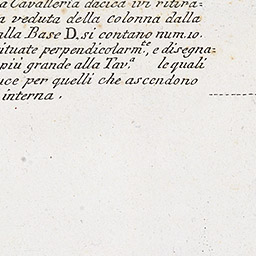 a Cavalleria dacica ivi ritira=
a veduta della colonna dalla
alla Base D. si contano num. 10.
situate perpendicolarm.e, e disegna=
più grande alla Tav.a le quali
uce per quelli che ascendono
interna.